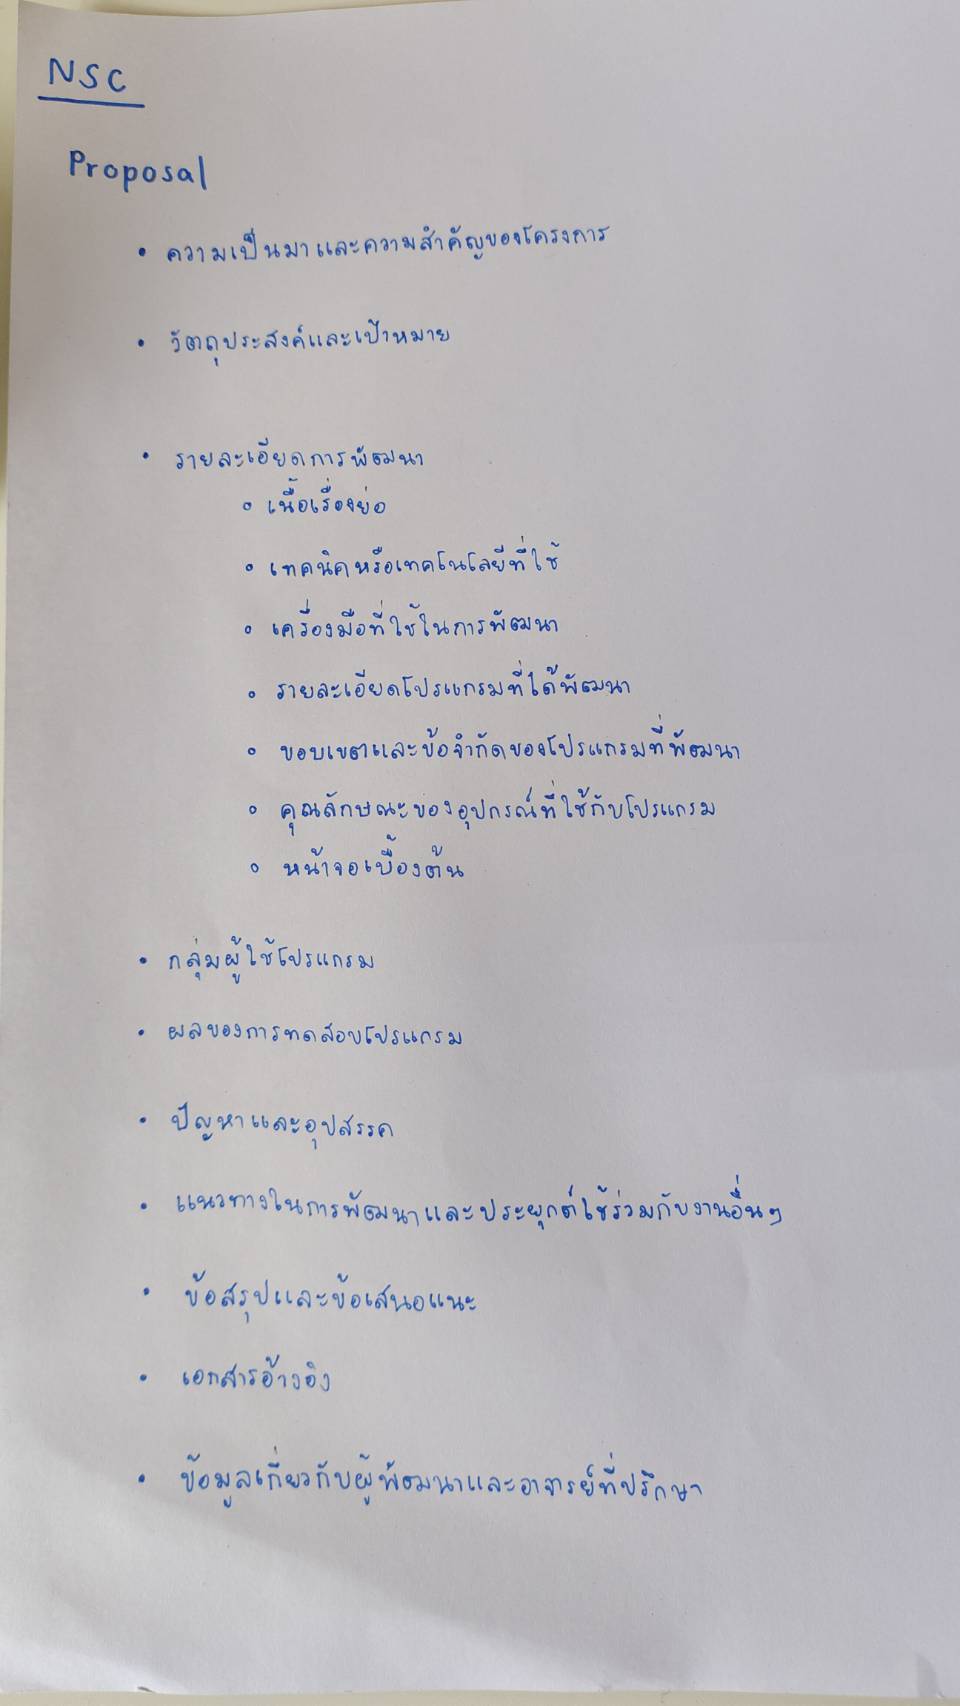 NSC
Proposal
• ความเป็นมาและความสำคัญของโครงการ
• วัตถุประสงค์และเป้าหมาย
• รายละเอียดการพัฒนา
∘ เนื้อเรื่องย่อ
∘ เทคนิคหรือเทคโนโลยีที่ใช้
∘ เครื่องมือที่ใช้ในการพัฒนา
∘ รายละเอียดโปรแกรมที่ได้พัฒนา
∘ ขอบเขตและข้อจำกัดของโปรแกรมที่พัฒนา
∘ คุณลักษณะของอุปกรณ์ที่ใช้กับโปรแกรม
∘ หน้าจอเบื้องต้น
• กลุ่มผู้ใช้โปรแกรม
• ผลของการทดสอบโปรแกรม
• ปัญหาและอุปสรรค
• แนวทางในการพัฒนาและประยุกต์ใช้ร่วมกับงานอื่นๆ
• ข้อสรุปและข้อเสนอแนะ
• เอกสารอ้างอิง
• ข้อมูลเกี่ยวกับผู้พัฒนาและอาจารย์ที่ปรึกษา